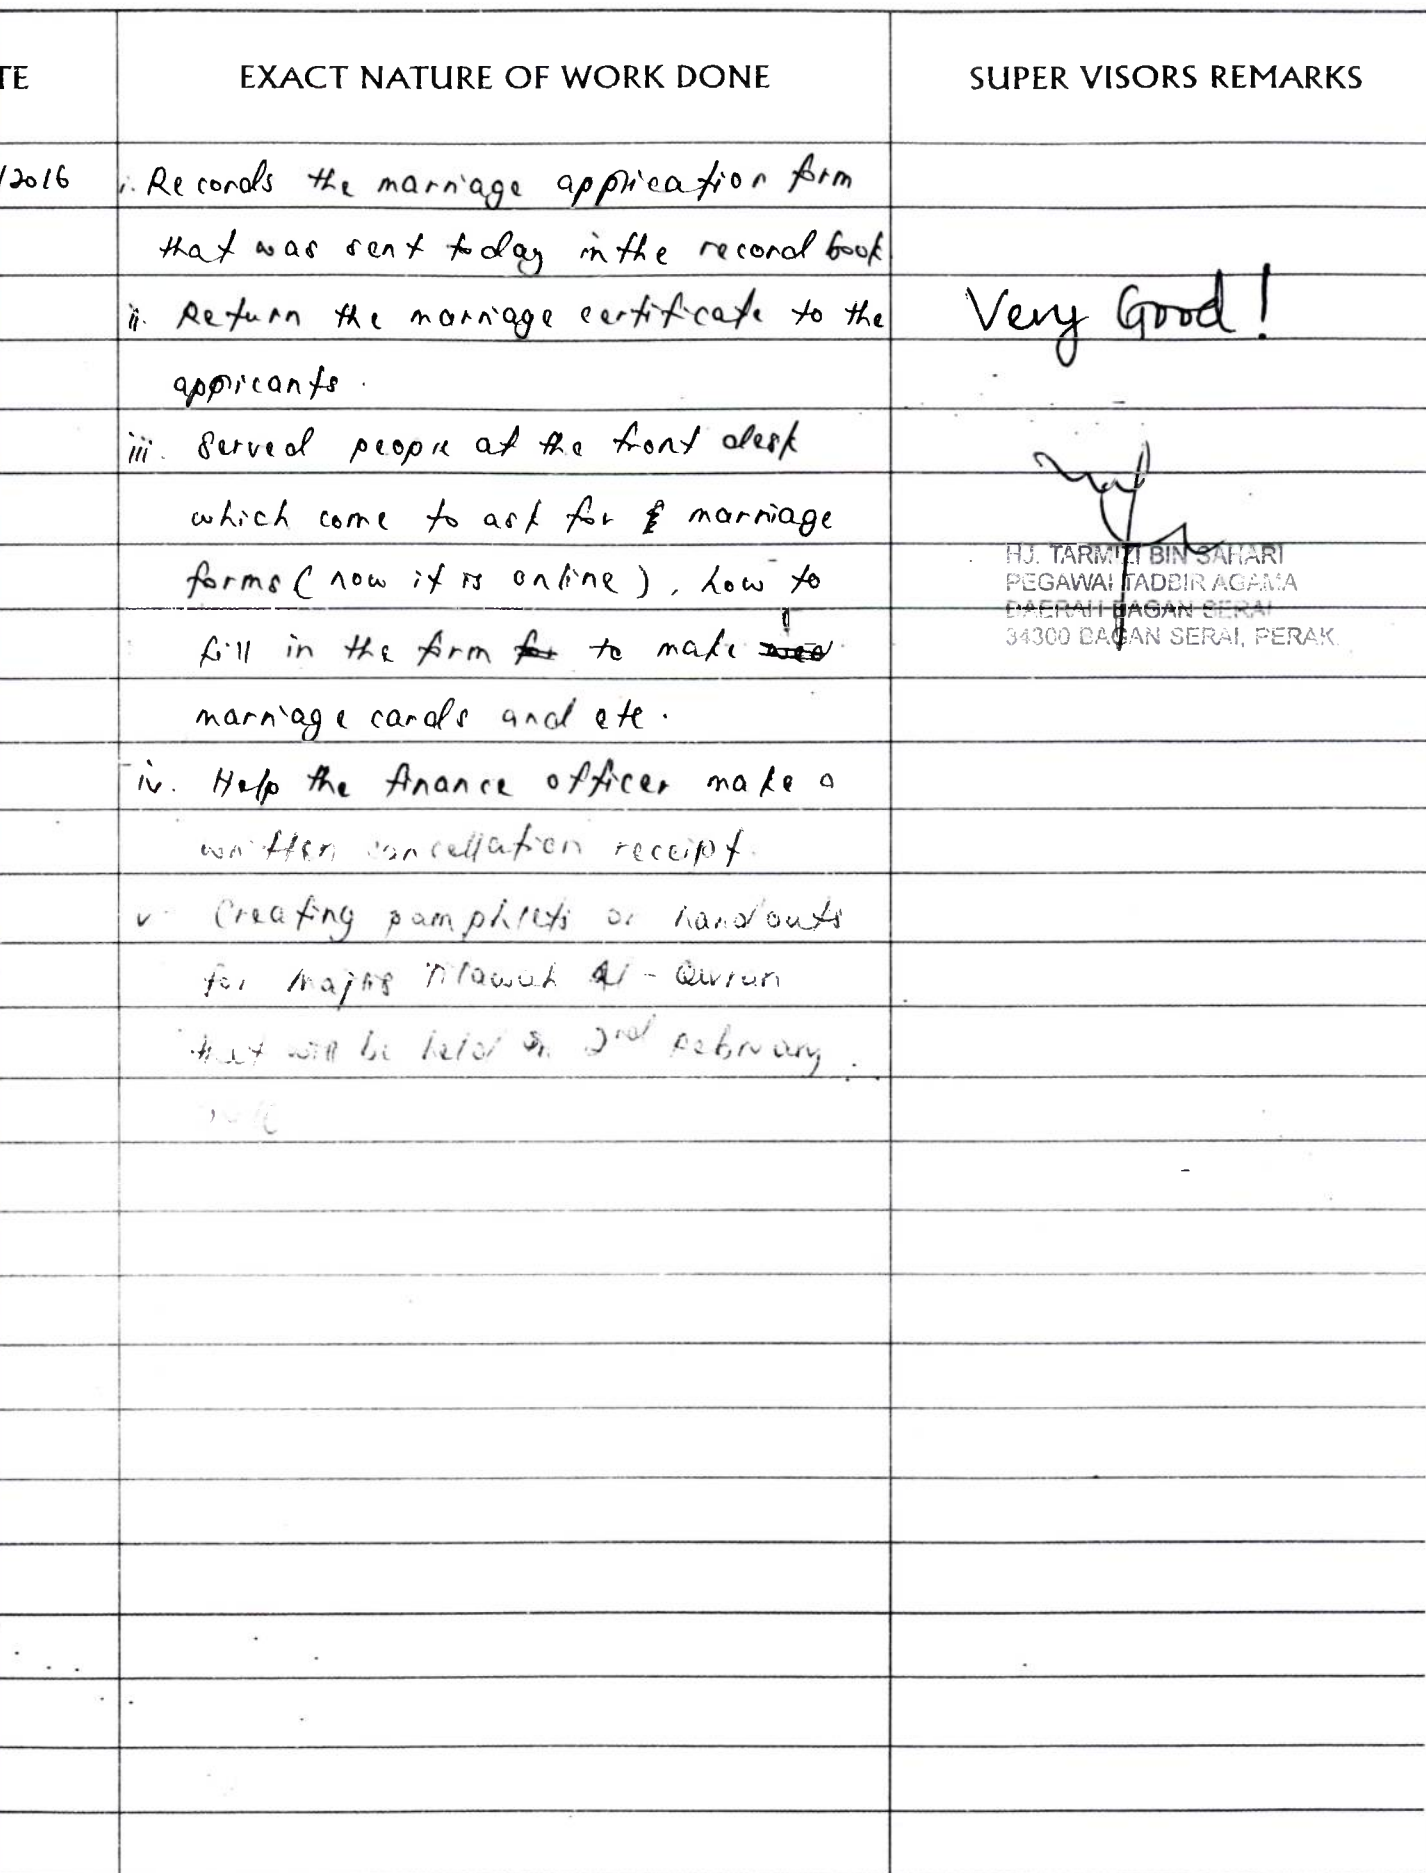 TE
EXACT NATURE OF WORK DONE
SUPER VISORS REMARKS
/2016
i. Records the marriage application form
that was sent today in the record book
ii. Return the marriage certificate to the
appicants.
iii. Served people at the front desk
which come to ask for marriage
forms (now it is online), how to
fill in the form to make
marriage cards and etc.
iv. Help the finance officer make a
written cancellation receipt.
v. Creating pamphlets or handouts
for Majlis Tilawah Al-Quran
that will be held on 2nd February
Very Good!
HJ. TARMIZI BIN SAHARI
PEGAWAI TADBIR AGAMA
DAERAH BAGAN SERAI
34300 BAGAN SERAI, PERAK.